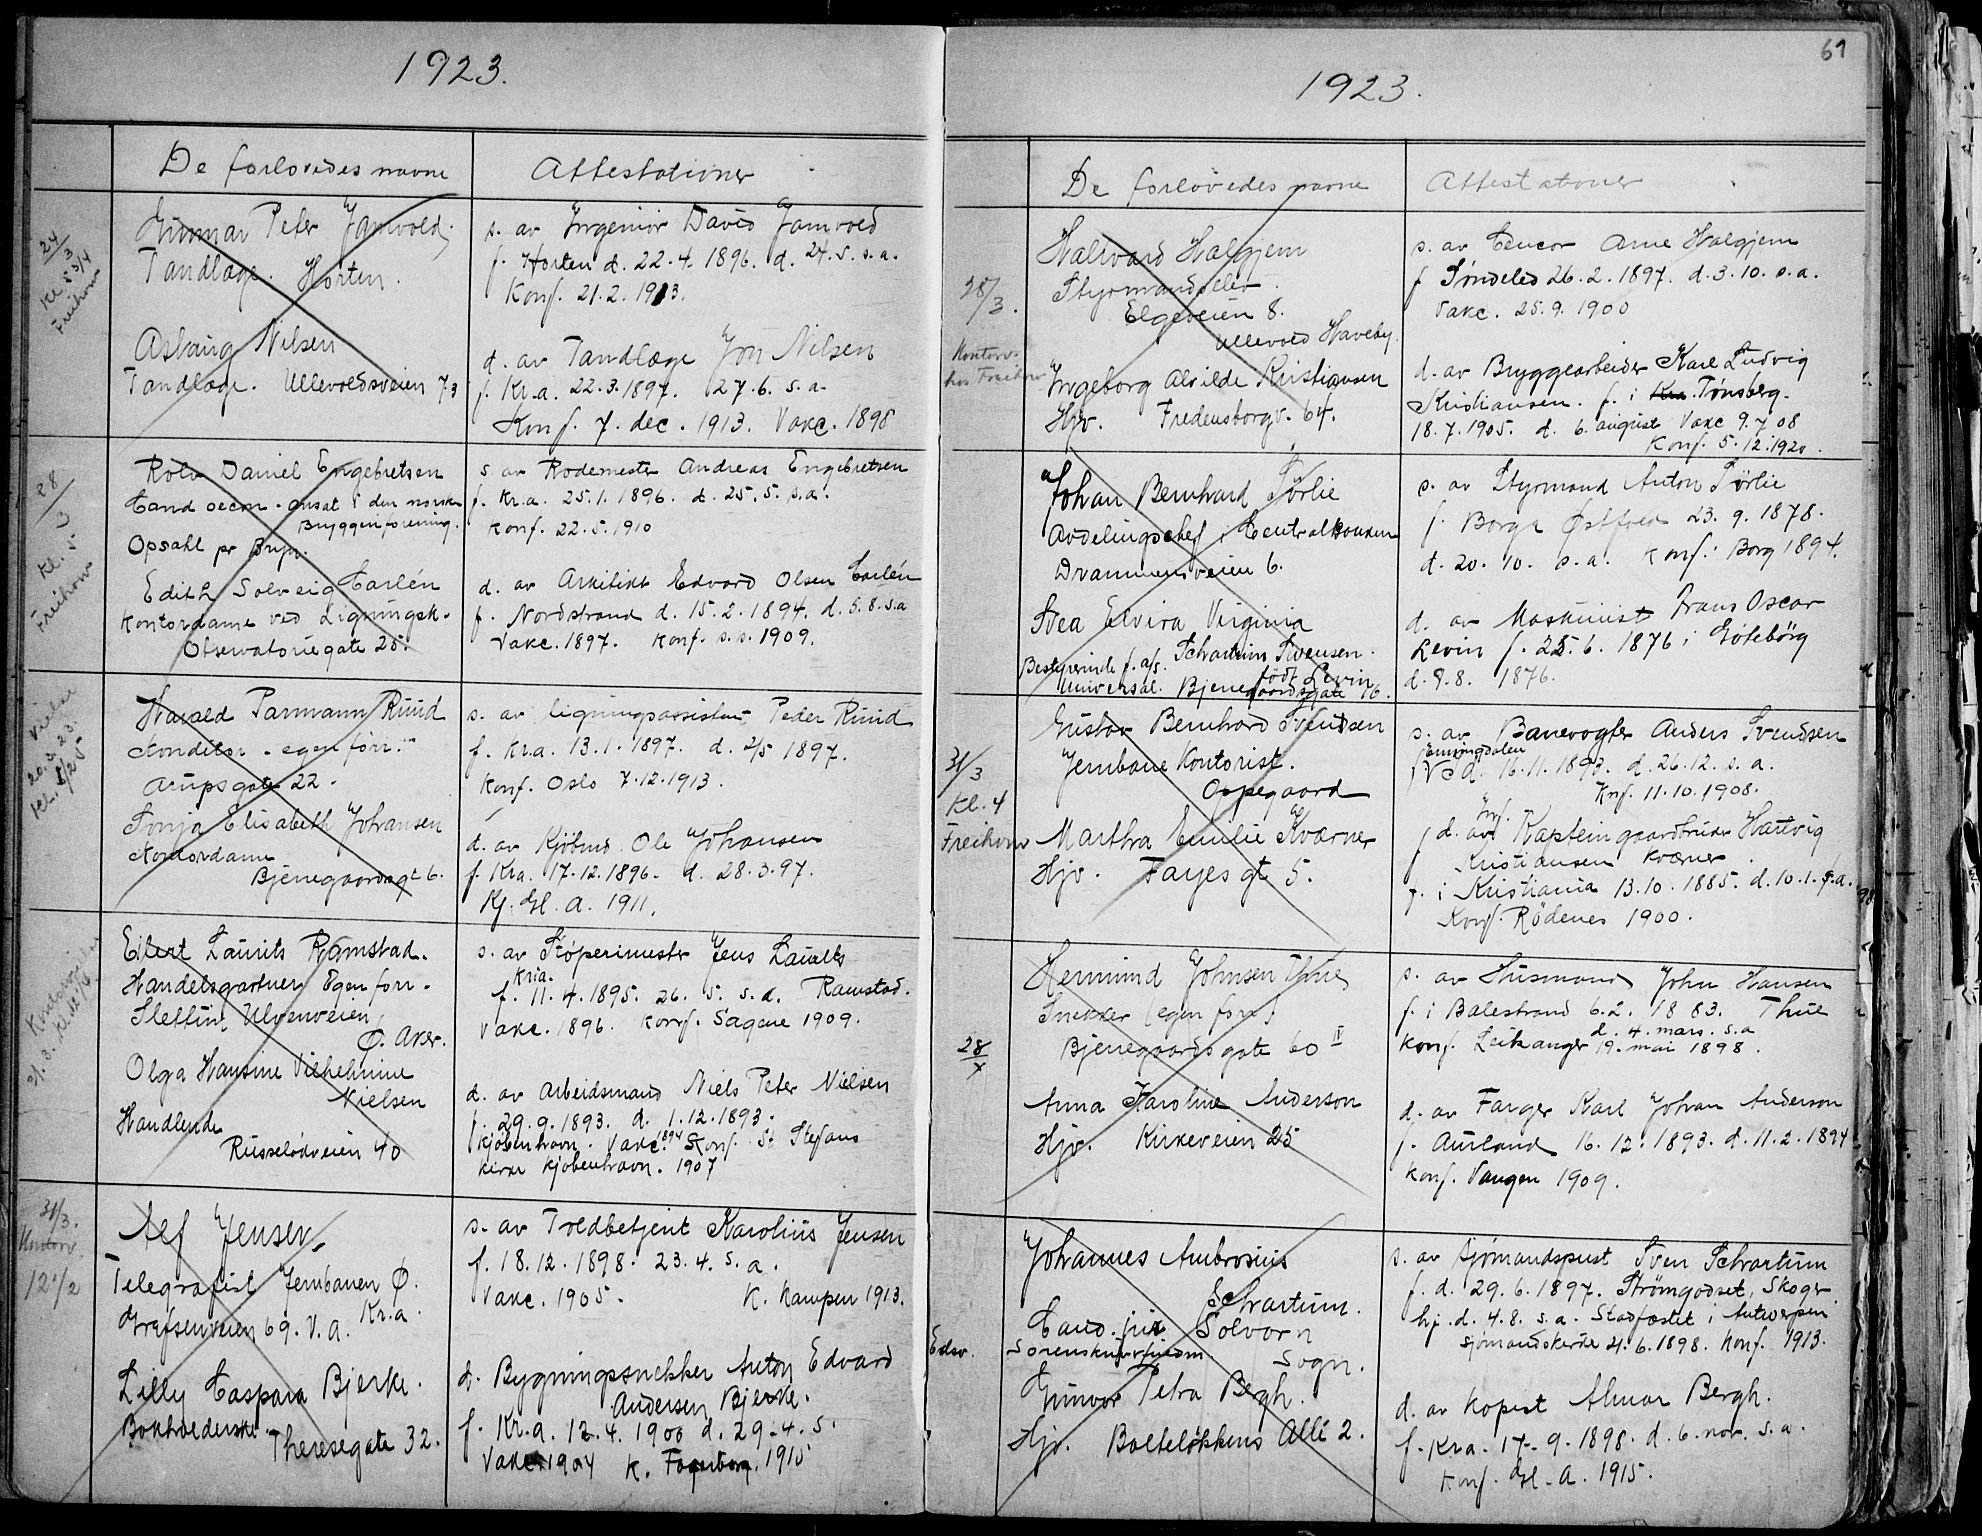 1923.
De forlovedes navne
Attestationer
24/3
Kl. 5 3/4
Freihow
Gunnar Peter Jamvold.
Tandlæge. Horten.
s. av Ingeniør David Jamvold
f. Horten d. 22.4.1896. d. 24.5. s.a.
Konf. 21.2.1913.
Aslaug Nilsen
Tandlæge. Ullevoldsveien 73
d. av Tandlæge Jon Nilsen
f. Kr.a. 22.3.1897. 27.6. s.a.
Konf. 7. dec. 1913. Vakc. 1898
28/3
Kl. 5
Freihow
Rolv Daniel Engebretsen
Cand oecon. ansat i den norske
Bryggeriforening.
Opsahl pr Bryn.
s. av Rodemester Andreas Engebretsen
f. Kr.a. 25.1.1896. d. 25.5. s.a.
Konf. 22.5.1910
Edith Solveig Carlén
Kontordame ved Ligningsk.
Observatoriegate 25.
d. av Arkitekt Edvard Olsen Carlén
f. Nordstrand d. 15.2.1894. d. 5.8. s.a
Vakc. 1897. Konf. s.s. 1909.
Vielse
20.3.23.
Harald Parmann Ruud
Konditor - egen forr.
Arupsgate 22.
s. av ligningsassistent Peder Ruud
f. Kr.a. 13.1.1897. d. 2/5 1897.
Konf. Oslo 7.12.1913.
Sonja Elisabeth Johansen
Kontordame
Bjenegaardsgt 6.
d. av Kjøbmd. Ole Johansen
f. Kra. 17.12.1896. d. 28.3.97.
Kj. Gl. A. 1911.
21.3.
Eilert Laurits Ramstad.
Handelsgartner Egen forr.
Slettun, Ulvenveien,
Ø. Aker.
s. av Støperimester Jens Laurits
Kria.
f. 11.4.1895. 26. 5. s.a. Ramstad.
Vakc. 1896. Konf. Sagene 1909.
Olga Hansine Vilhelmine
Nielsen
Handlende
Russeløkveien 40
d. av Arbeidsmand Niels Peter Nielsen
f. 29.9.1893. d. 1.12.1893.
Kjøbenhavn. Vakc. 1894 Konf. St Stefans
kirke Kjøbenhavn. 1907
31/3.
Kontorv.
12 1/2
Alf Jensen.
Telegrafist Jernbanen Ø.
Kr.a.
Grefsenveien 69. V. A.
s. av Toldbetjent Karolius Jensen
f. 18.12.1898. 23.4. s.a.
Vakc. 1905. K. Kampen 1913.
Lilly Caspara Bjerke.
Bokholderske.
Theresegate 32.
d. Bygningssnekker Anton Edvard
Andersen Bjerke.
f. Kr.a. 12.4.1900 d. 29.4. s.
Vakc 1904 K. Fagerborg. 1915
61
1923.
De forlovedes navne
Attestationer
28/3.
Kontorv.
hos Freihow
Hallvard Halgjem
Styrmandselev.
Elgeveien 8.
Ullevold Haveby.
s. av Censor Arne Halgjem
f Søndeled 26.2.1897. d. 3.10. s.a.
Vakc. 25.9.1900
Ingeborg Alvilde Kristiansen
Hjv. Fredensborgv. 64.
d. av Bryggearbeider Karl Ludvig
Kristiansen. f. i Kra. Tønsberg.
18.7.1905. d. 6. august Vakc 9.7.08
Konf. 5.12.1920.
Johan Bernhard Sørlie
Avdelingschef i Centralbanken
Drammensveien 6.
s. av Styrmand Anton Sørlie
f. Borge Østfold 23.9.1878.
d. 20.10. s.a. Konf. i Borg 1894.
Svea Elvira Virginia
Bestyrerinde f. a/s. Schartum Svensen.
født Levin
Universal. Bjenegaardsgate 16.
d. av Maskinist Frans Oscar
Levin f. 25.6.1876 i Gøtebørg
d. 9.8. 1876.
31/3
Kl. 4
Freihow
Gustav Bernhard Svendsen
Jernbane Kontorist.
Oppegaard
s. av Banevogter Anders Svendsen
Enningdalen
16.11.1893. d. 26.12. s.a.
Knf. 11.10.1908.
Marthra Emilie Kværner
Hjv. Fayes gt 5.
d. av Kaptein gaardbruker Hartvig
Kristiansen Kværner.
f. i Kristiania 13.10.1885. d. 10.1. s.a.
Konf. Rödenes 1900.
28/x
Hermund Johnsen Thue
Snekker (egen forr.)
Bjenegaardsgate 60 IV
s. av Husmand John Hansen
f. i Balestrand 6.2. 1883. Thue
d. 4. mars. s.a
Konf Leikanger 19. mai 1898.
Anna Karoline Anderson
Hjv. Kirkeveien 25
d. av Farger Karl Johan Anderson
f. Aurland 16.12.1893. d. 11.2.1894
Konf. Vangen 1909.
Edsv.
Johannes Ambrosius
Schartum.
Cand. jur Solvorn
Sorenskriverfuldm. Sogn.
s. av Sjømandsprest Sven Schartum
f. d. 29.6.1897. Strømgodset, Skoger
hj. d. 4.8. s.a. Stadfæstet i Antwerpen
sjømandskirke 4.6.1898. Konf. 1913.
Gunvor Petra Bergh.
Hjv. Bolteløkkens Allé 2.
d. av Kopist Almar Bergh.
f. Kra. 17.9.1898. d. 6. nov. s.a.
Konf. Gl. A. 1915.